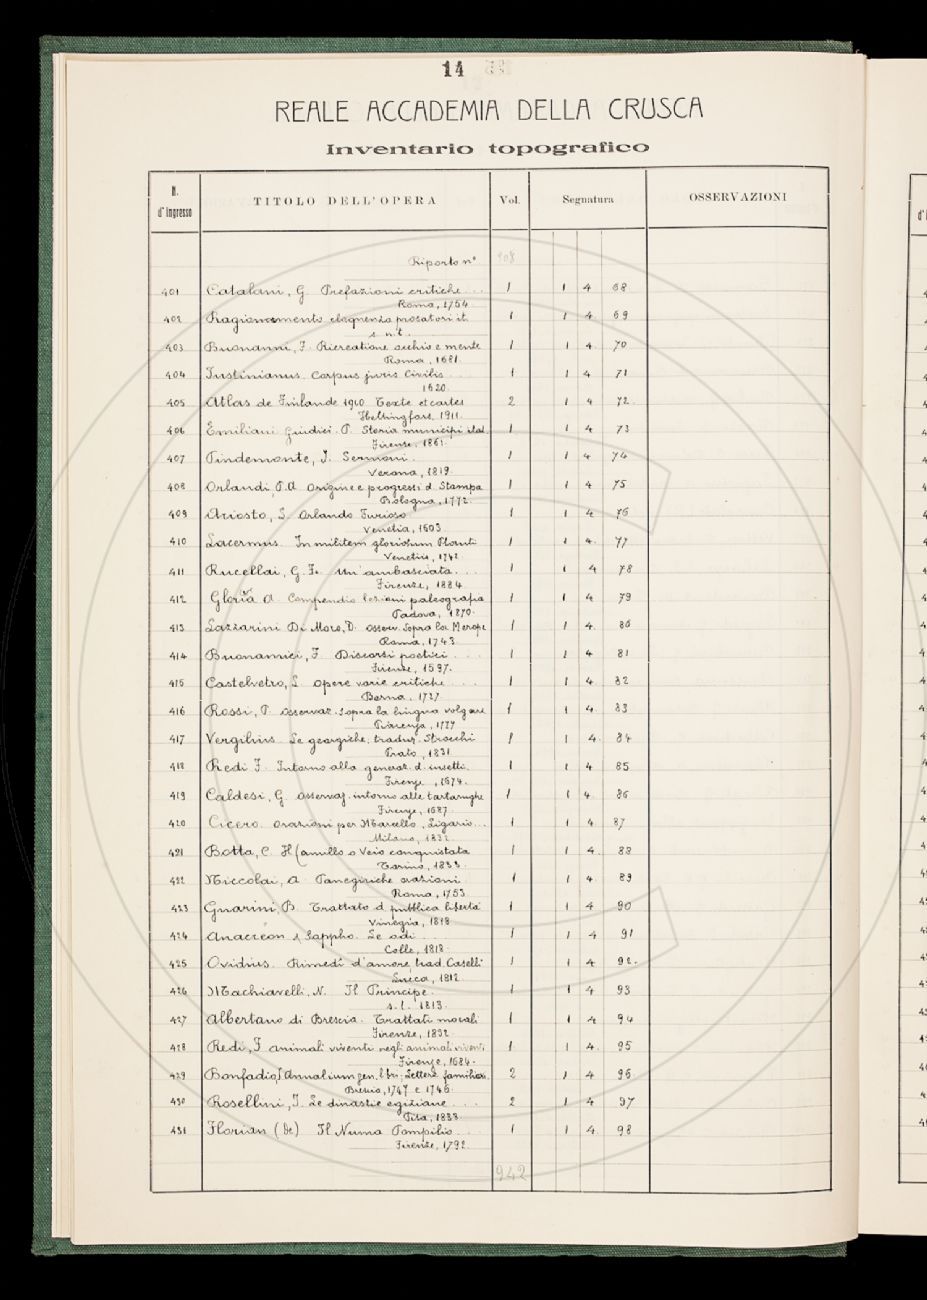 14
REALE ACCADEMIA DELLA CRUSCA
Inventario topografico
N. d'Ingresso TITOLO DELL'OPERA Vol. Segnatura OSSERVAZIONI
Riporto n° 908
401 Catalani, G. Prefazioni critiche ... 1 1 4 68
Roma, 1754
402 Ragionamento eloquenza prosatori it. 1 1 4 69
s. n. t.
403 Buonanni, F. Ricreatione occhio e mente 1 1 4 70
Roma, 1681
404 Justinianus Corpus juris civilis ... 1 1 4 71
1620.
405 Atlas de Finlande 1910 Texte et cartes 2 1 4 72.
Helsingfors, 1911.
406 Emiliani Giudici. P. Storia municipi ital. 1 1 4 73
Firenze, 1861.
407 Pindemonte, I. Sermoni. 1 1 4 74
Verona, 1819.
408 Orlandi, P. A. Origine e progressi d. Stampa 1 1 4 75
Bologna, 1772.
409 Ariosto, L. Orlando Furioso 1 1 4 76
Venetia, 1603
410 Lacermus. In militem gloriosum Plauti 1 1 4. 77
Venetiis, 1742
411 Rucellai, G. F. Un'ambasciata ... 1 1 4 78
Firenze, 1884.
412 Gloria A. Compendio lezioni paleografia 1 1 4 79
Padova, 1870.
413 Lazzarini Di Moro, D. osserv. sopra la Merope 1 1 4. 80
Roma, 1743.
414 Buonamici, F. Discorsi poetici ... 1 1 4 81
Firenze, 1597.
415 Castelvetro, L. opere varie critiche ... 1 1 4. 82
Berna, 1727
416 Rossi, P. osservaz. sopra la lingua volgare 1 1 4. 83
Piacenza, 1777
417 Vergilius. Le georgiche, traduz. Strocchi 1 1 4. 84
Prato, 1831
418 Redi F. Intorno alla generaz. d. insetti. 1 1 4. 85
Firenze, 1674.
419 Caldesi, G. osservaz. intorno alle tartarughe 1 1 4. 86
Firenze, 1687
420 Cicero. orazioni per Marcello, Ligario ... 1 1 4. 87
Milano, 1832
421 Botta, C. Il Camillo o Veio conquistata 1 1 4. 88
Torino, 1833.
422 Niccolai, A. Panegiriche orazioni 1 1 4. 89
Roma, 1753
423 Guarini, B. Trattato d. pubblica libertà 1 1 4 90
Vinegia, 1818
424 Anacreon & Sappho. Le odi 1 1 4 91
Colle, 1818.
425 Ovidius. Rimedi d'amore trad. Caselli 1 1 4 92.
Lucca, 1812.
426 Machiavelli, N. Il Principe. 1 1 4 93
s. l. 1813.
427 Albertano di Brescia. Trattati morali 1 1 4 94
Firenze, 1832
428 Redi, F. animali viventi negli animali viventi 1 1 4. 95
Firenze, 1684.
429 Bonfadio, J. Annalium gen. libri; Lettere familiari. 2 1 4 96.
Brescia, 1747 e 1746.
430 Rosellini, I. Le dinastie egiziane ... 2 1 4 97
Pisa, 1833.
431 Florian (De) Il Numa Pompilio ... 1 1 4. 98
Firenze, 1792.
942